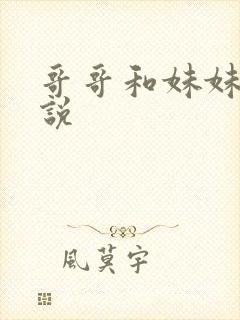 哥哥和妹妹
說
風莫宇